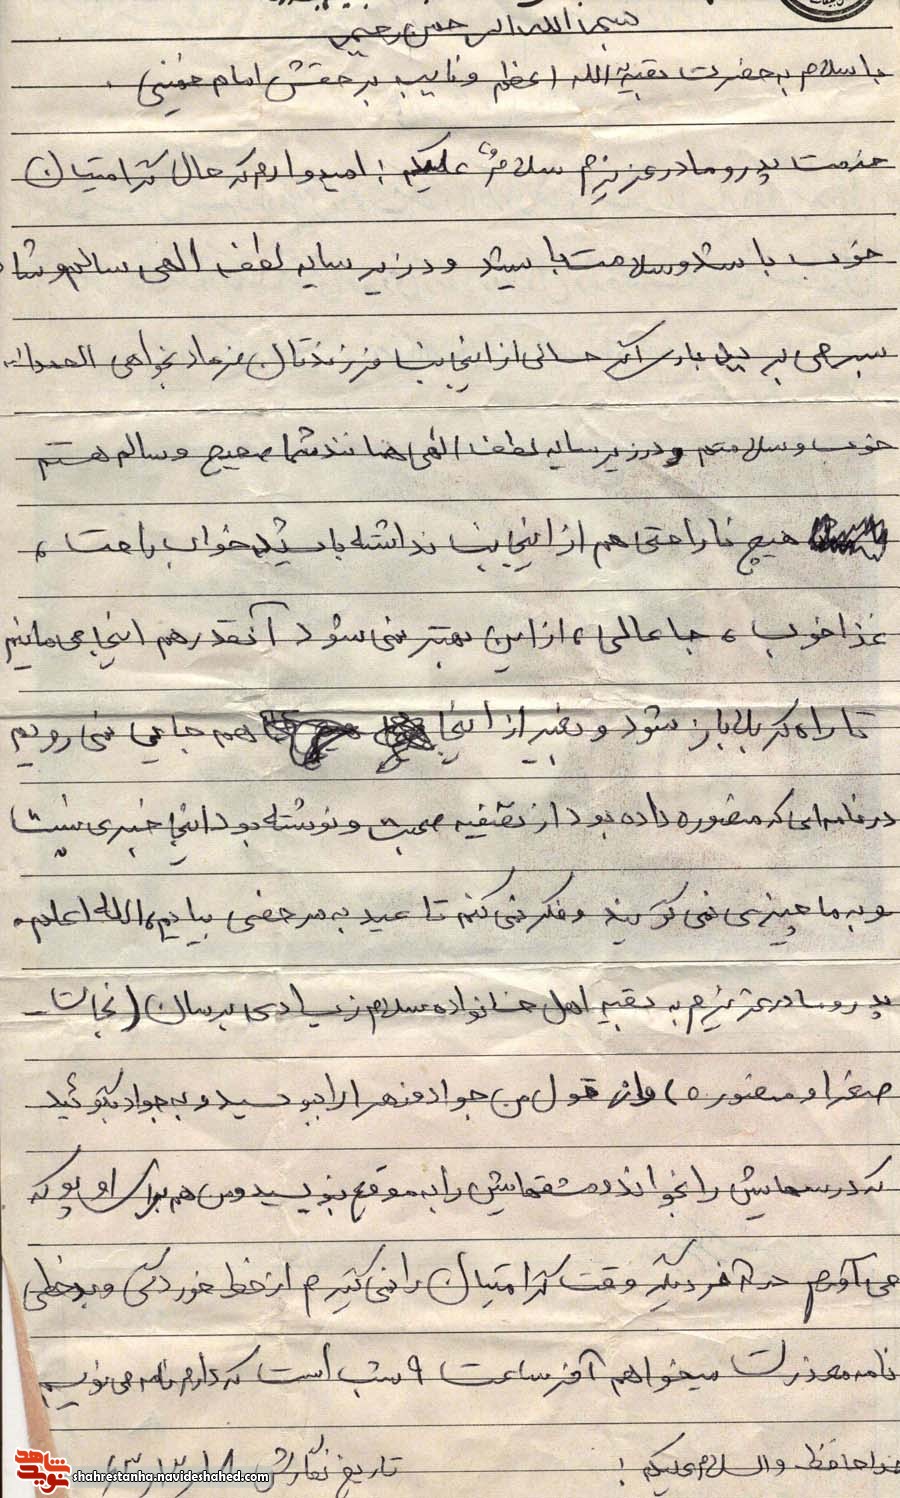 بسم الله الرحمن رحیم
با سلام به حضرت بقیه الله اعظم و نایب برحقش امام خمینی .
خدمت پدر و مادر عزیزم سلام علیکم ! امیدوارم که حال گرامیتان
خوب باشد و سلامت باشید و در زیر سایه لطف الهی سالم و شاد
سر می برید اگر حالی از اینجانب فرزندتان فرهاد بخواهی الحمدالله
خوب و سلامتم و در زیر سایه لطف الهی همانند شما صحیح و سالم هستم
هیچ ناراحتی هم از اینجانب نداشته باشید خواب راحت ،
غذا خوب ، جا عالی ، از این بهتر نمی شود آنقدر هم اینجا می مانیم
تا راه کربلا باز شود و بغیر از اینجا هم جایی نمی رویم
در نامه ایی که منصوره داده بود از تصفیه صحبت و نوشته بود اینجا خبری نیست
و به ما چیزی نمی گویند و فکر نمی کنم تا عید به مرخصی بیایم، الله اعلم.
پدر و مادر عزیزم به بقیه اهل خانواده سلام زیادی برسان (نجات -
صغرا و منصوره) و از قول من جواد و زهرا را ببوسید و به جواد بگوئید
که درسهایش را بخواند و مشقهایش را به موقع بنویسد و من هم برای او پوکه
می آورم دیگر وقت گرامیتان را نمی گیرم از خط خوردگی و بدخطی
نامه معذرت میخواهم آخر ساعت ۹ شب است که دارم نامه می نویسم
خداحافظ والسلام علیکم ! تاریخ نگارش
شاهد نوید
shahrestanha.navideshahed.com